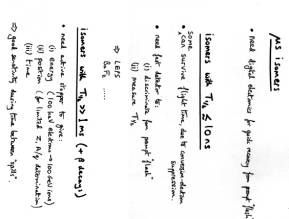 μs isomers
• need digital electronics for quick recovery from prompt "flash"
isomers with T½ ≤ 10 ns
• some can survive flight time, due to conversion-electron suppression.
• need fast detectors to:
(i) discriminate from prompt "flash"
(ii) measure T½
⇒ LEPS
BaF₂
isomers with T½ >> 1 ms (+ β decays)
• need active stopper to give:
(i) energy (100 keV electrons → 100 GeV ions)
(ii) position (for limited Z, A/q determination)
(iii) time
⇒ good sensitivity during time between "spills".